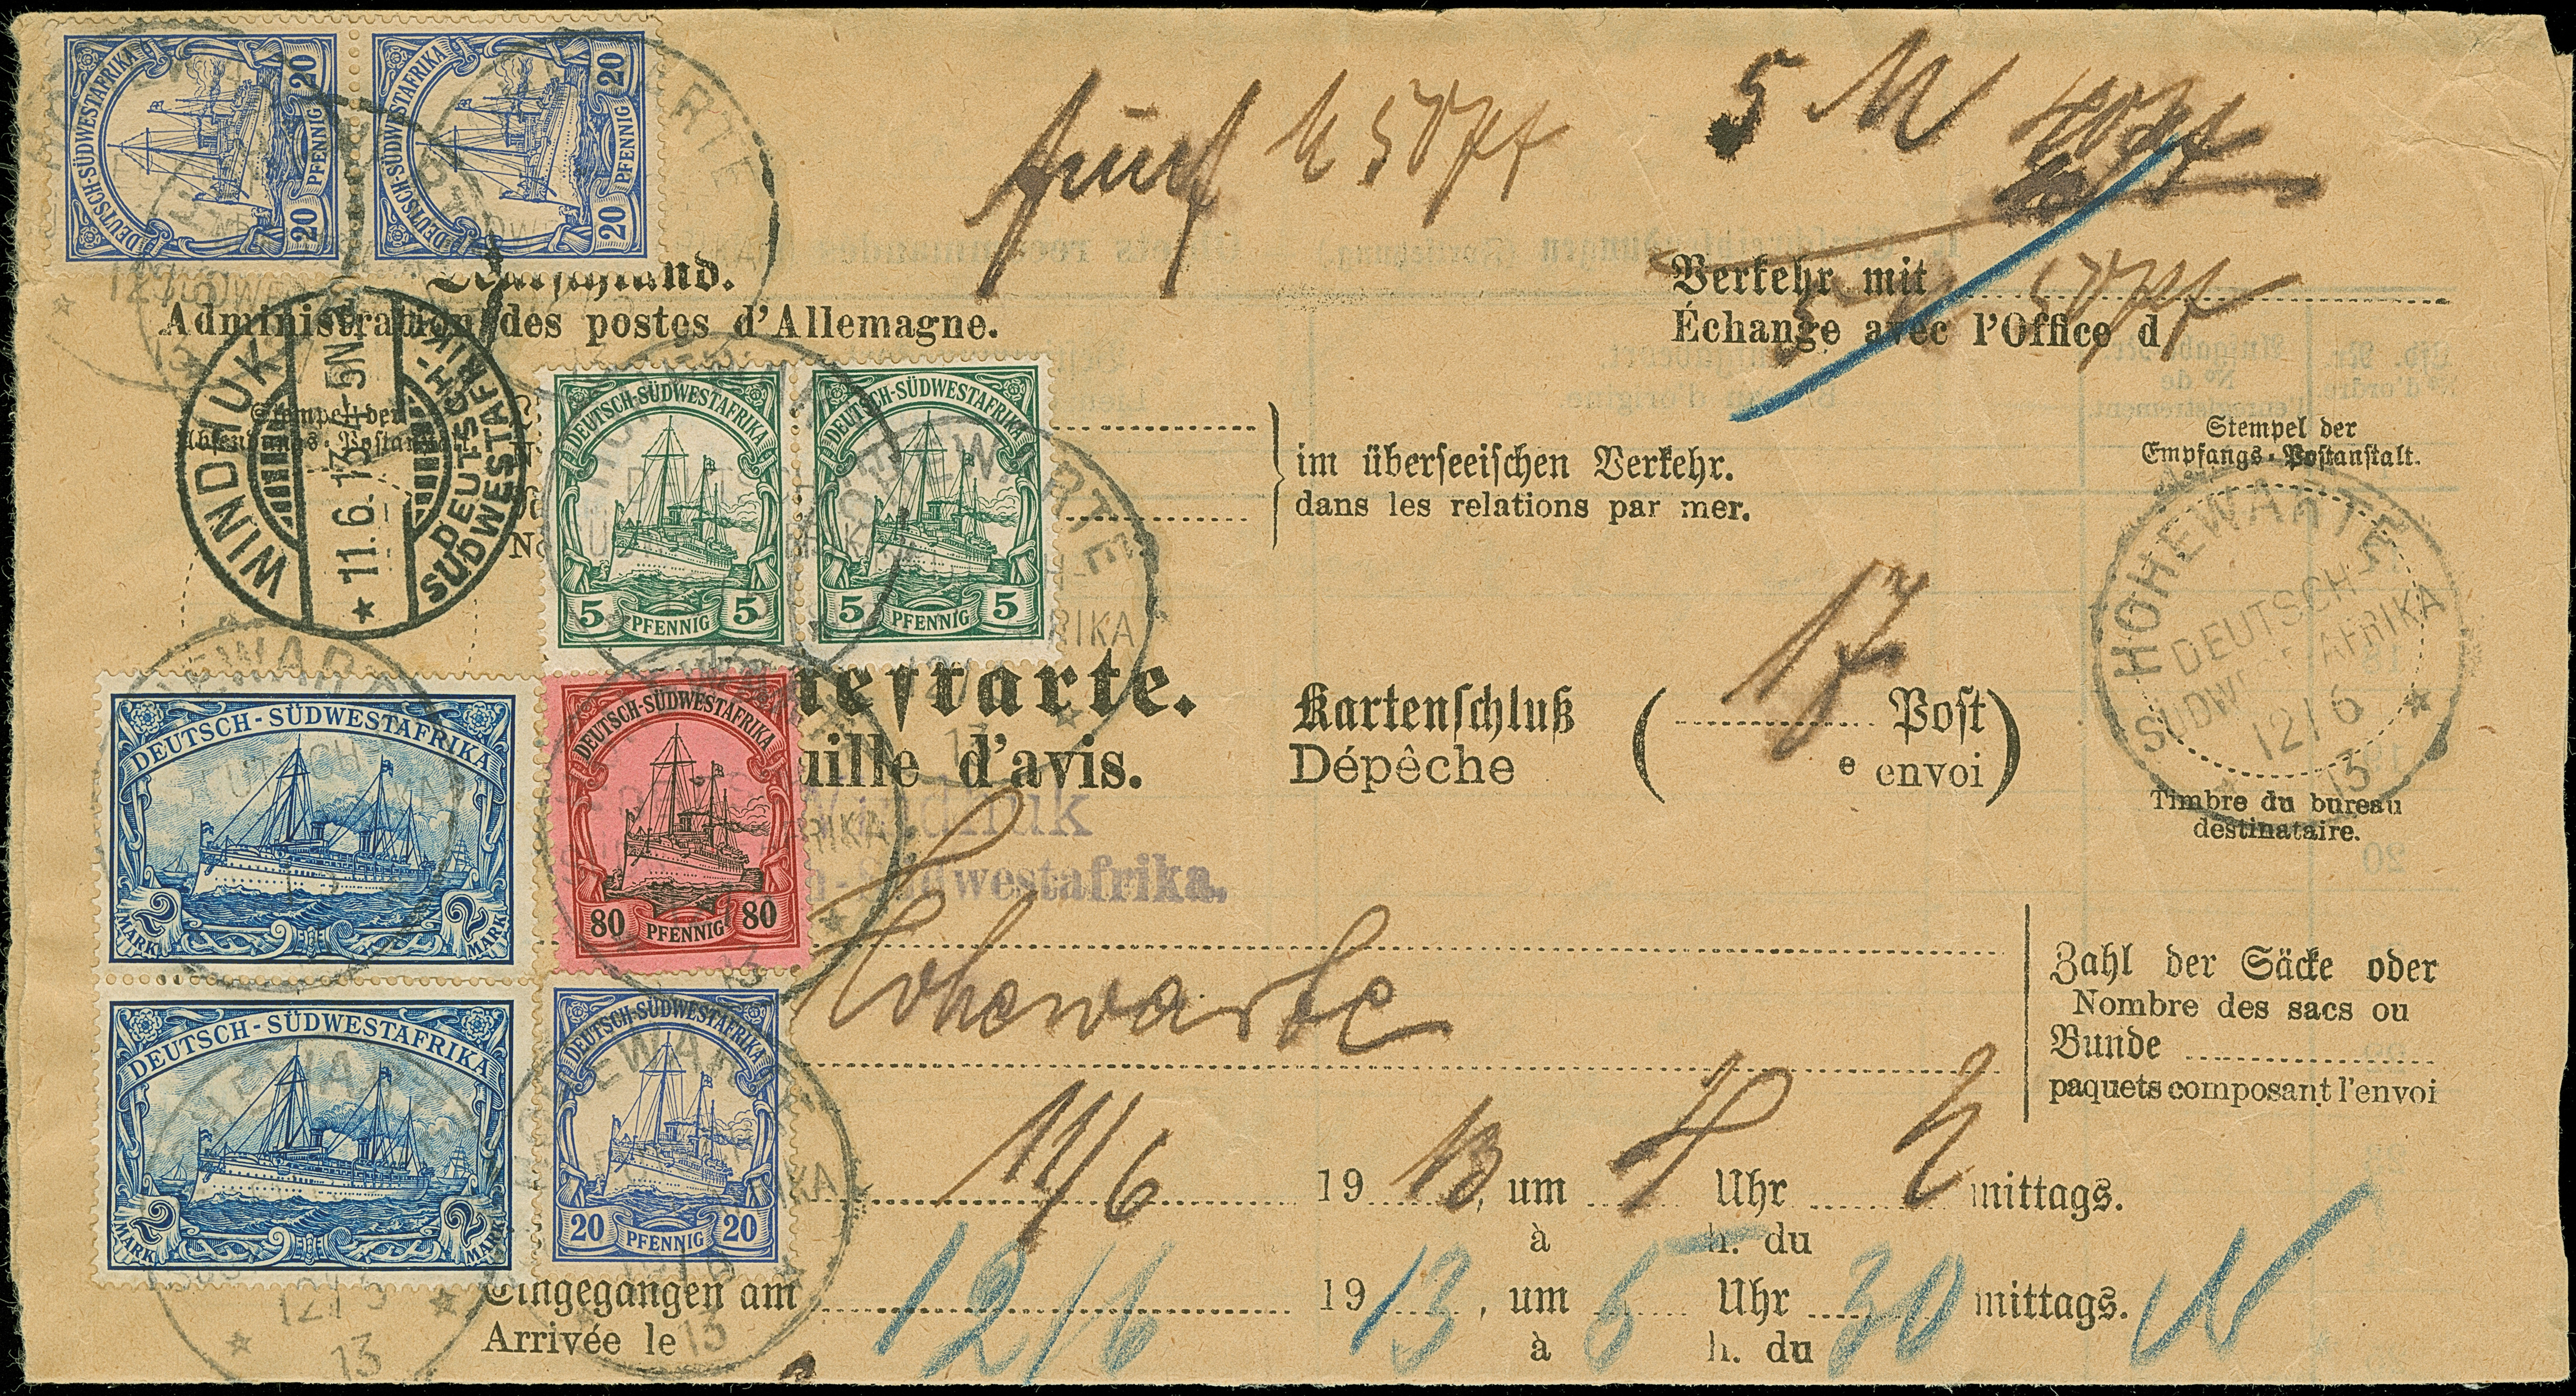 DEUTSCH-SÜDWESTAFRIKA
20 PFENNIG 20
DEUTSCH-SÜDWESTAFRIKA
20 PFENNIG 20
fünf M 50 Pf
5 M
50 Pf
Administration des postes d'Allemagne.
Verkehr mit
Échange avec l'Office d
WINDHUK
11.6.13. 5N
DEUTSCH-
SÜDWESTAFRIKA
Stempel der
Absendungs-Postanstalt.
DEUTSCH-SÜDWESTAFRIKA
5 PFENNIG 5
DEUTSCH-SÜDWESTAFRIKA
5 PFENNIG 5
im überseeischen Verkehr.
dans les relations par mer.
Stempel der
Empfangs-Postanstalt.
HOHEWARTE
DEUTSCH-
SÜDWESTAFRIKA
12/6
13
Timbre du bureau
destinataire.
uille d'avis.
Kartenschluß ( 17 Post
Dépêche e envoi)
Windhuk
-Südwestafrika.
DEUTSCH-SÜDWESTAFRIKA
2 MARK 2 MARK
DEUTSCH-SÜDWESTAFRIKA
80 PFENNIG 80
Hohewarte
Zahl der Säcke oder
Nombre des sacs ou
Bunde
paquets composant l'envoi
DEUTSCH-SÜDWESTAFRIKA
2 MARK 2 MARK
DEUTSCH-SÜDWESTAFRIKA
20 PFENNIG 20
11/6 1913, um Uhr mittags.
à h. du
Eingegangen am 12/6 1913, um 5 Uhr 30 mittags. N
Arrivée le à h. du
HOHEWARTE
12/6
13